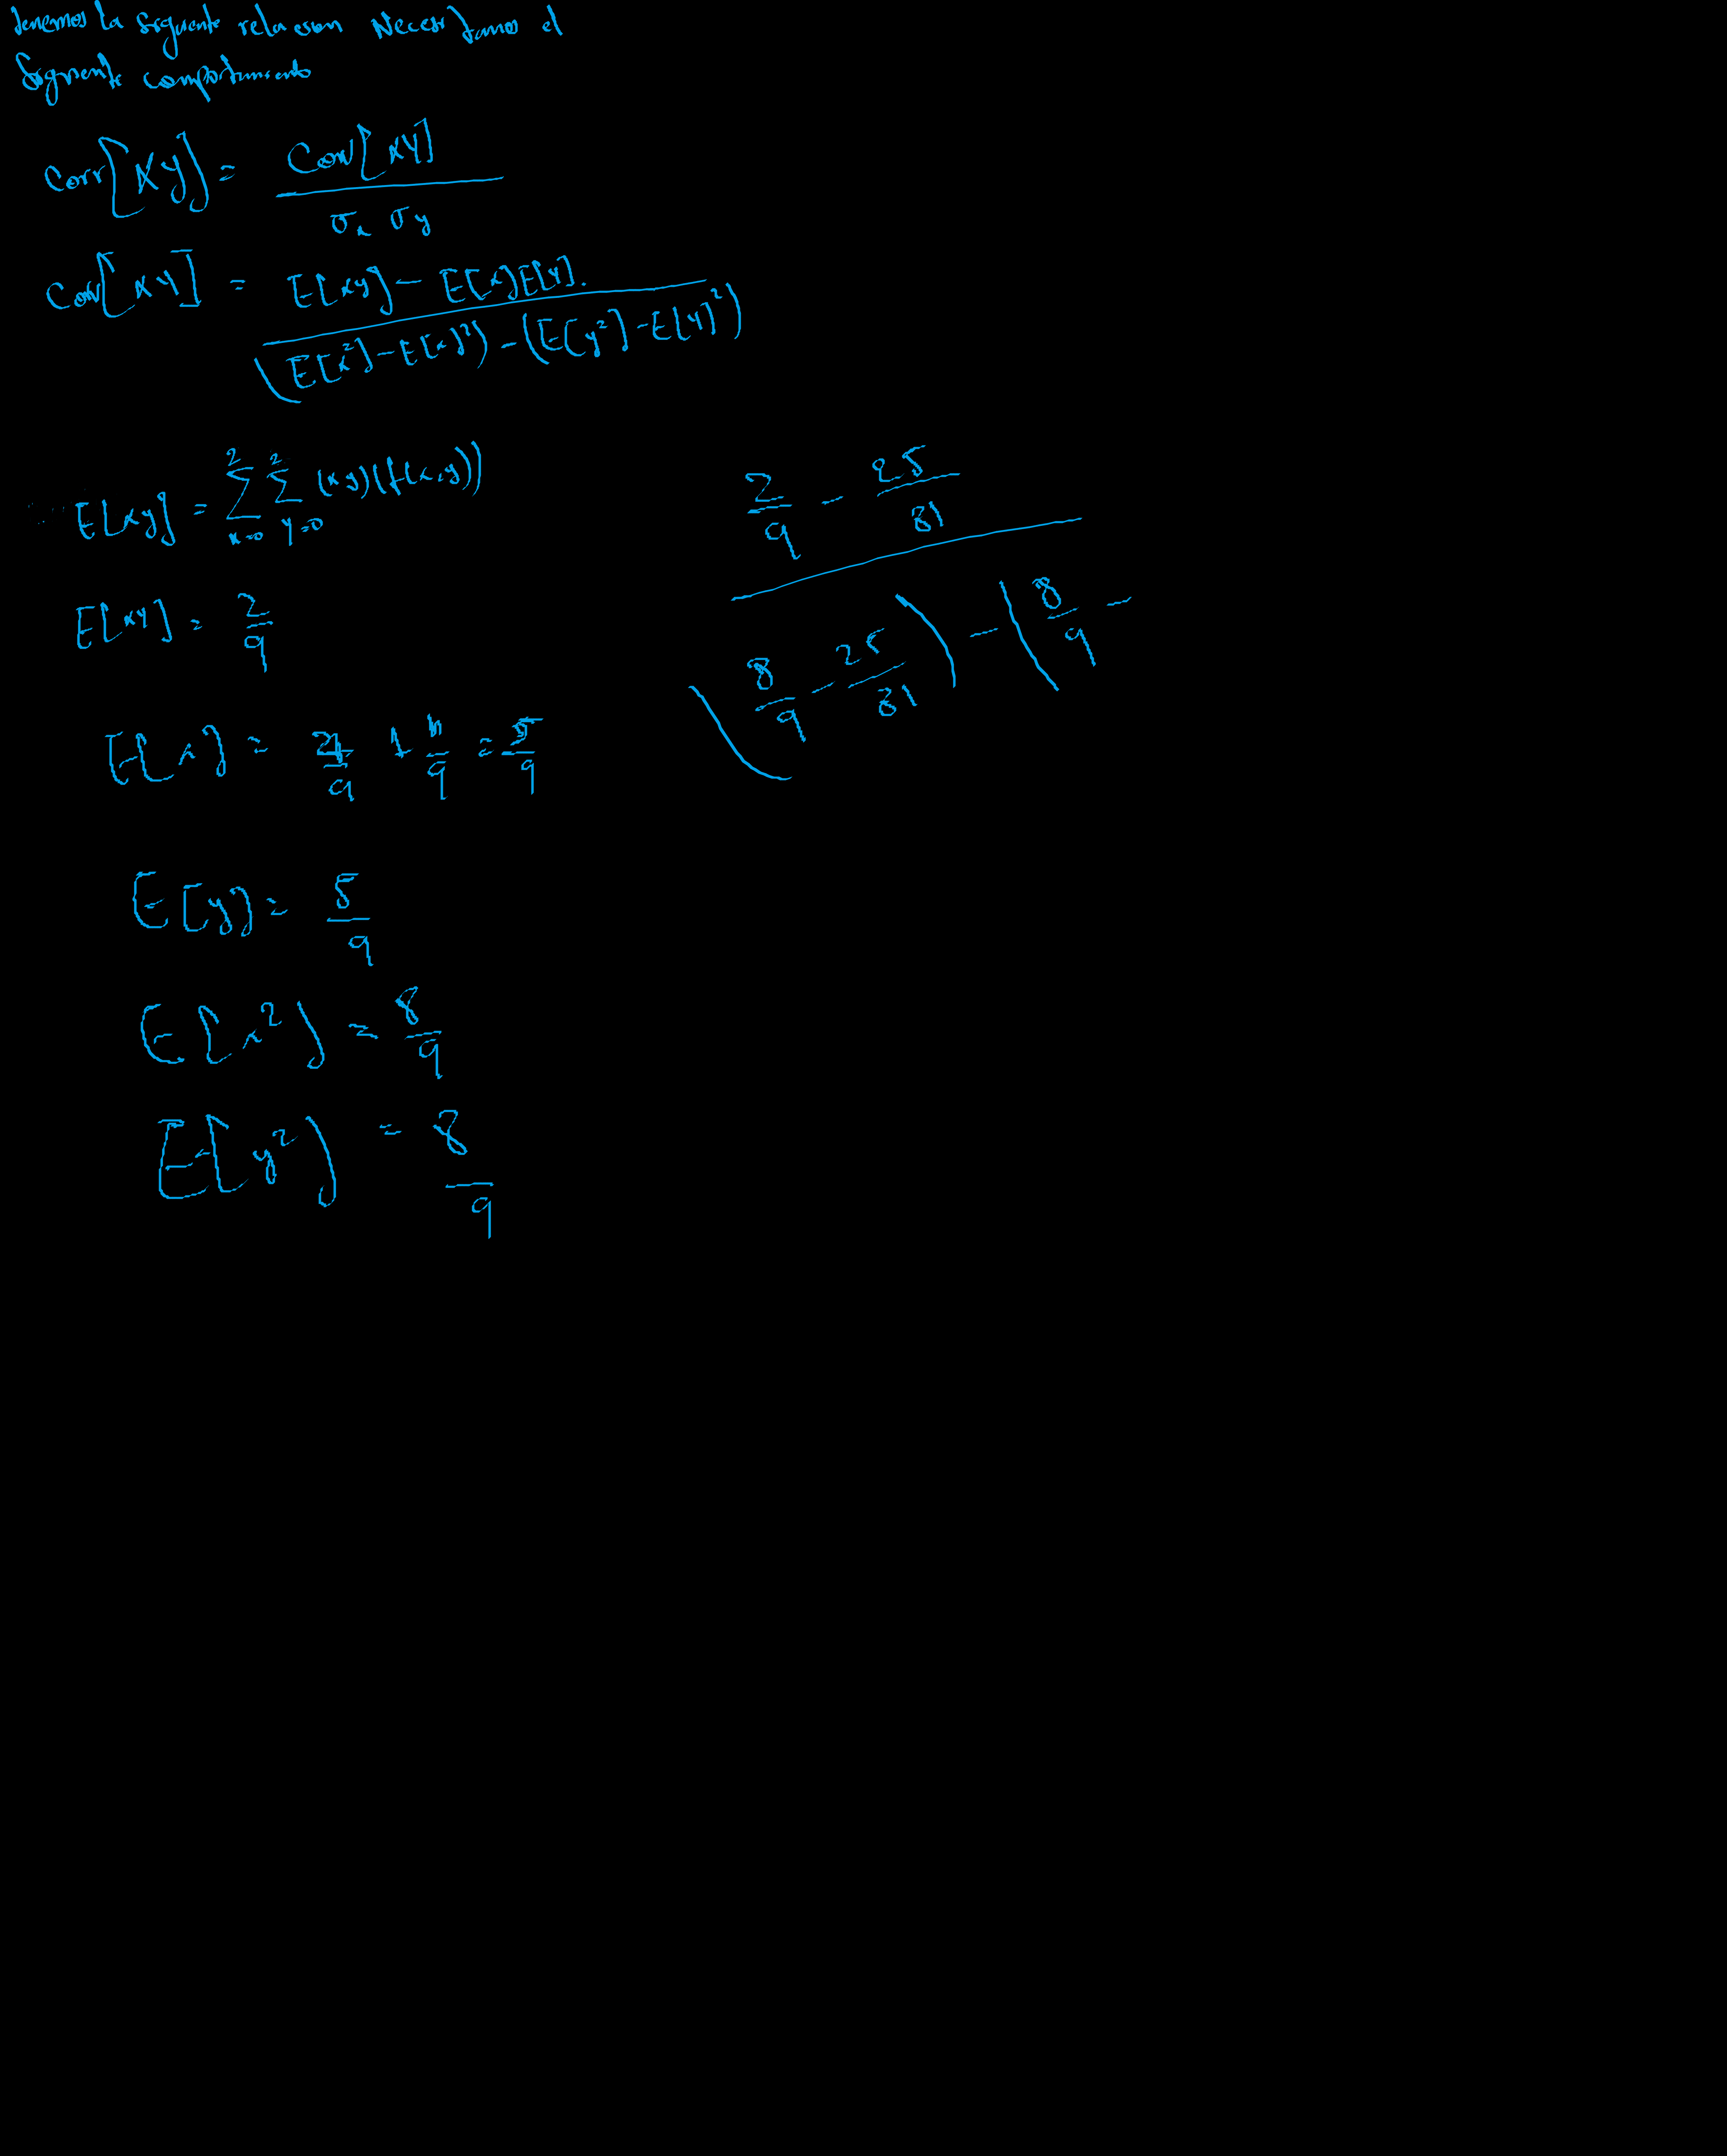 Tenemos la siguiente relacion Necesitamos el
siguiente comportamiento
Corr[xy] = Cov[xy] / σx σy
Cov[xy] = E[xy] - E[x]E[y]. / (E[x²] - E[x]²) - (E[y²] - E[y]²)
E[xy] = Σ x=0 2 Σ y=0 2 (xy)(f(x,y))
E[xy] = 2/9
E[x] = /9 + /9 = 5/9
E[y] = 5/9
E[x²] = 8/9
E[y²] = 8/9
2/9 - 25/81
(8/9 - 25/81) - (8/9 -